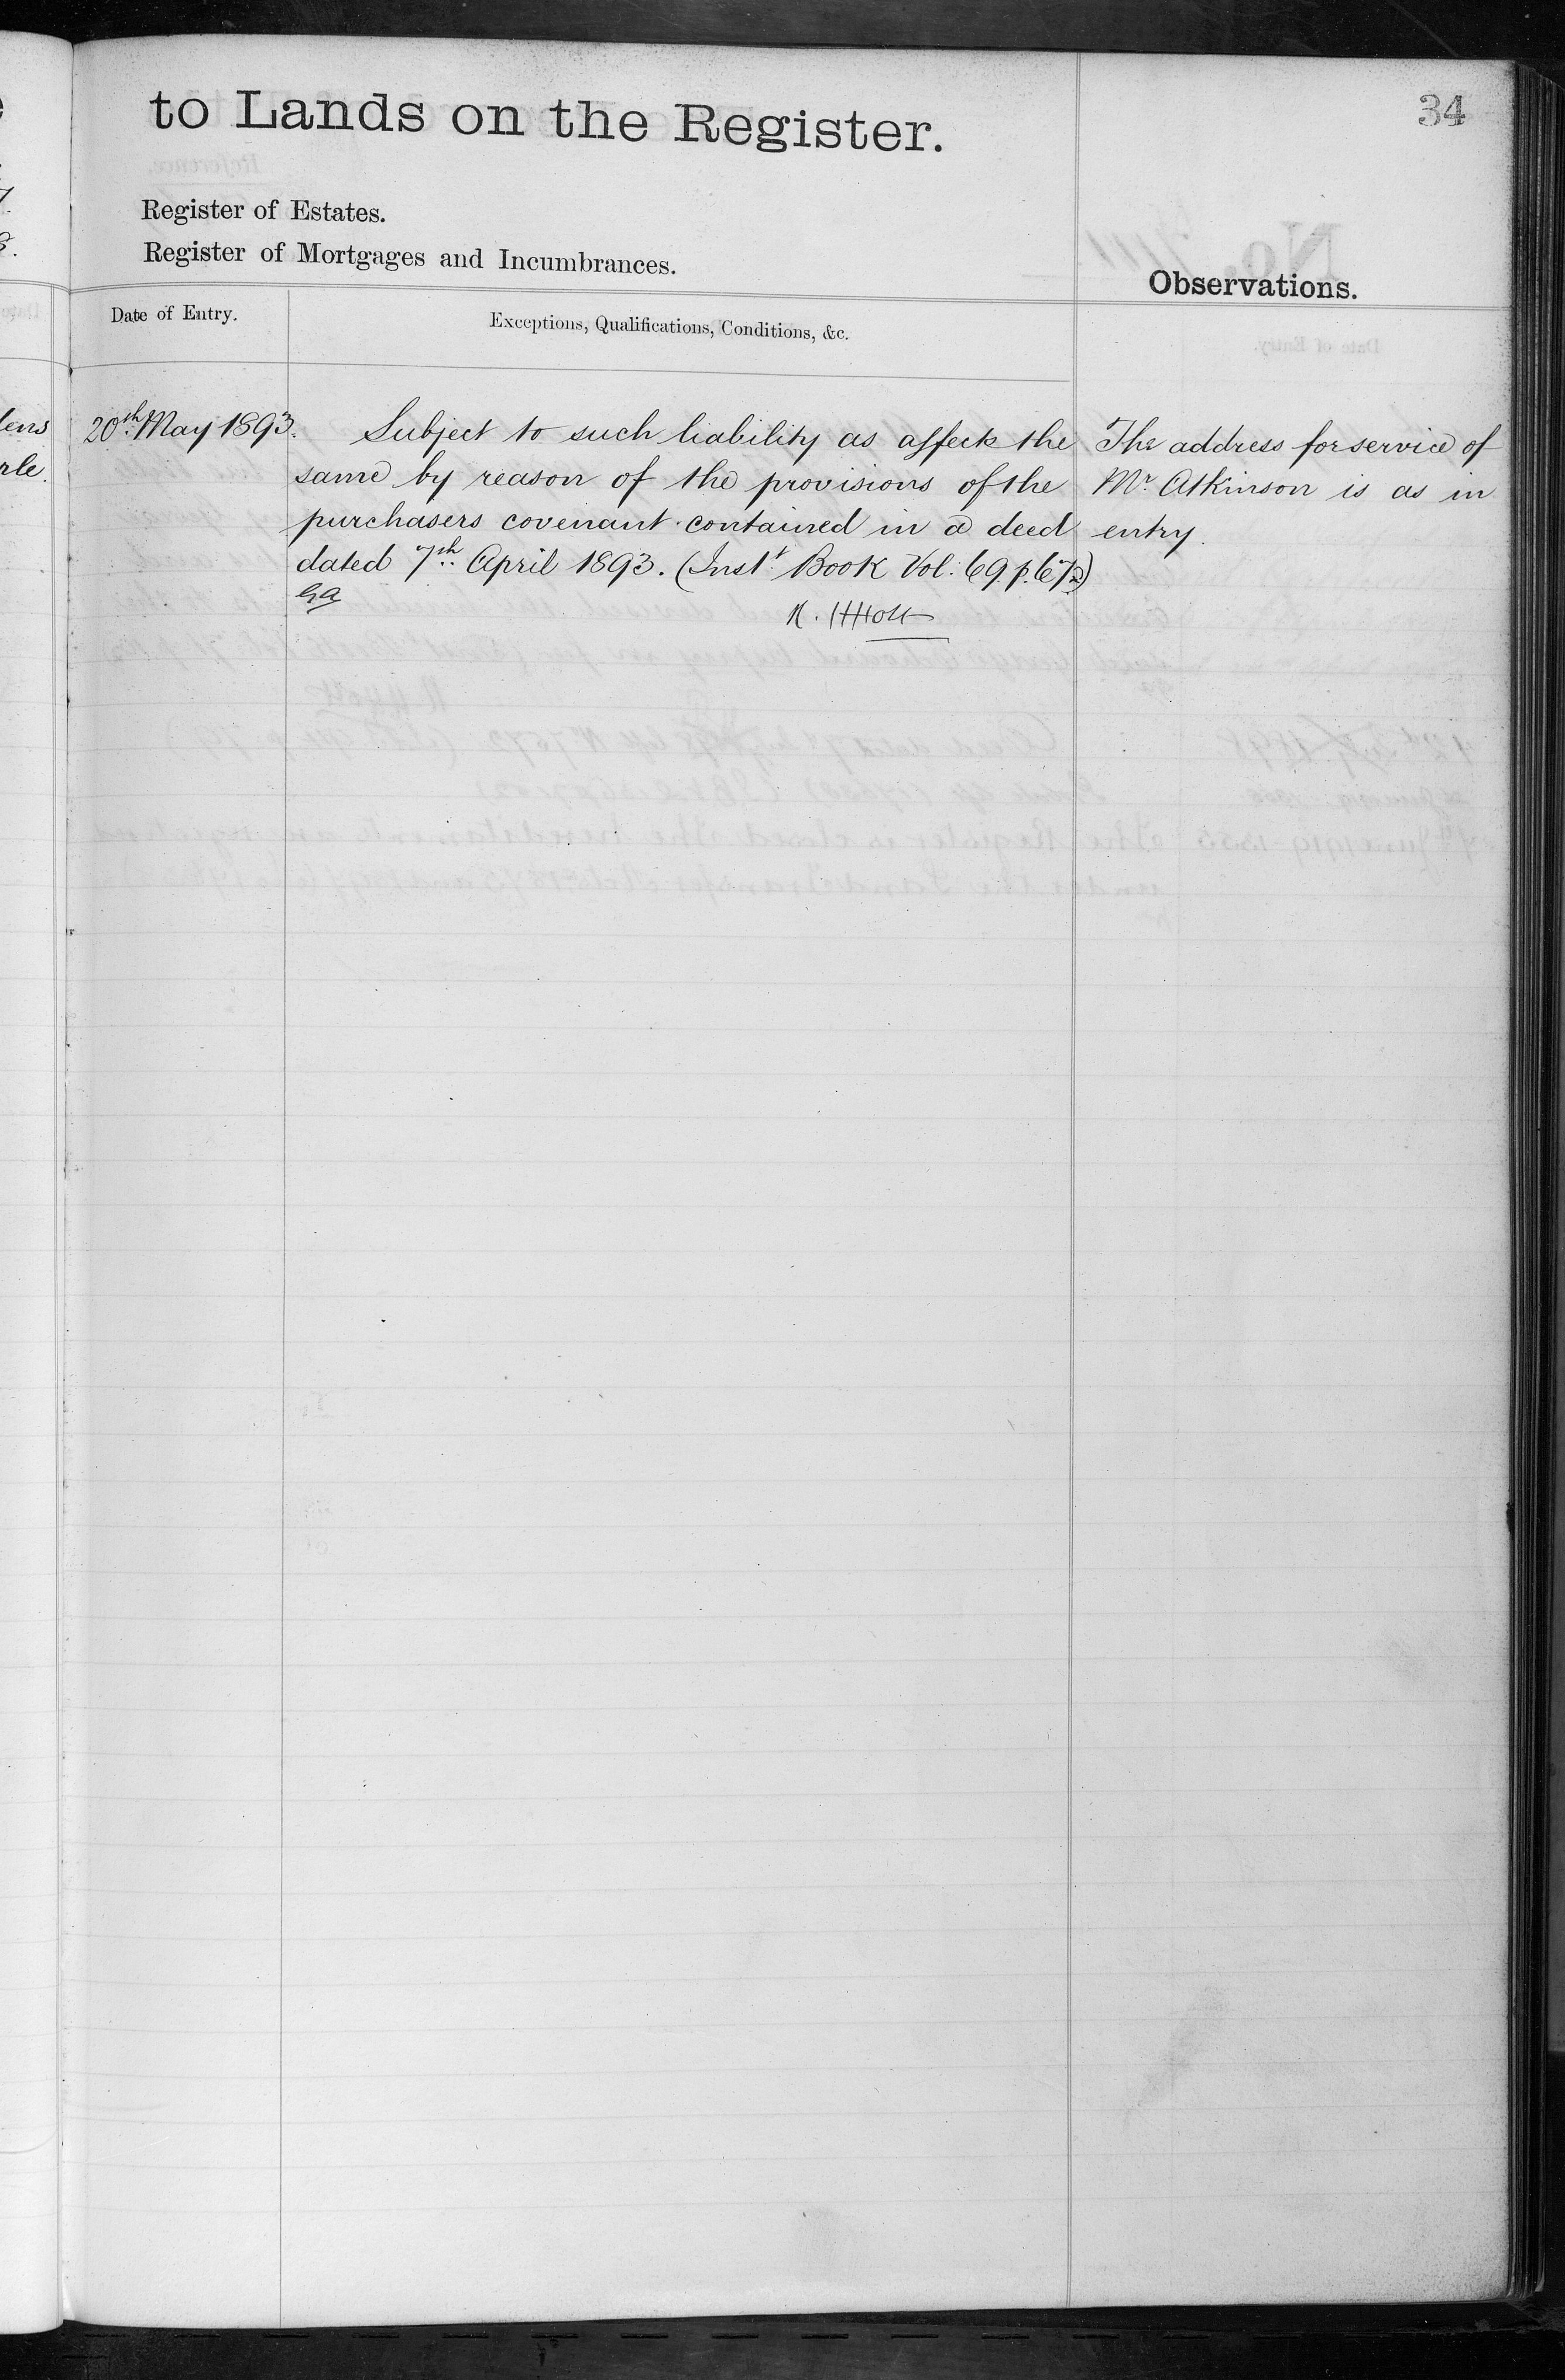 34
to Lands on the Register.
Register of Estates.
Register of Mortgages and Incumbrances.
Observations.
Date of Entry.
Exceptions, Qualifications, Conditions, &c.
20th May 1893.
Subject to such liability as affects the
same by reason of the provisions of the
purchasers covenant contained in a deed
dated 7th April 1893. (Inst. Book Vol. 69 p. 672)
The address for service of
Mr Atkinson is as in
entry.